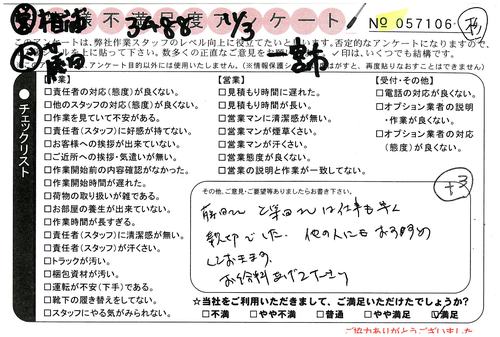 客様不満足度アンケート
3488 11/3
No 057106
このアンケートは、弊社作業スタッフのレベル向上に役立てたいと思います。否定的なアンケートになりますので、
アンケート目的以外には使用いたしません。
再度貼りなおすことはできません)
●チェックリスト
作業】
□責任者の対応(態度)が良くない。
□他のスタッフの対応(態度)が良くない。
□作業を見ていて不安がある。
□責任者(スタッフ)に好感が持てない。
□お客様への挨拶が出来ていない。
□ご近所への挨拶・気遣いが無い。
□作業開始前の内容確認がなかった。
□作業開始時間が遅れた。
□荷物の取り扱いが雑である。
□お部屋の養生が出来ていない。
□作業時間が長すぎる。
□責任者(スタッフ)に清潔感が無い。
□責任者(スタッフ)が汗くさい。
□トラックが汚い。
□梱包資材が汚い。
□運転が不安(下手)である。
□靴下の履き替えをしてない。
□スタッフにやる気がみられない。
【営業】
□見積もり時間に遅れた。
□見積もり時間が長い。
□営業マンに清潔感が無い。
□営業マンが煙草くさい。
□営業マンが汗くさい。
□営業態度が良くない。
□営業の説明と作業が一致してない。
【受付・その他】
□電話の対応が良くない。
□オプション業者の説明
・作業が良くない。
□オプション業者の対応
(態度)が良くない。
その他、ご意見・ご要望等ありましたらお書き下さい。
親切でした。他の人にもおすすめ
しておきます。
お給料あげて下さい
☆当社をご利用いただきまして、ご満足いただけたでしょうか?
□不満 □やや不満 □普通 □やや満足 ☑満足
ご協力ありがとうございました